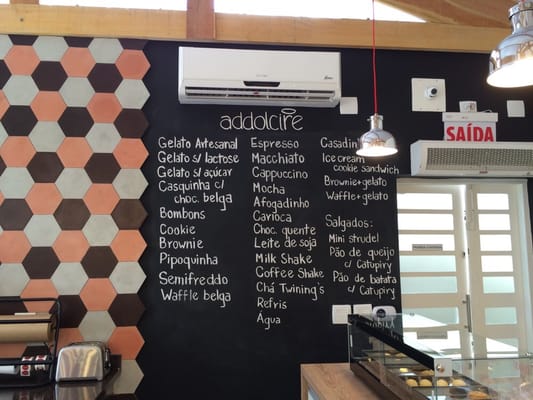 addolcire
Gelato Artesanal
Gelato s/ lactose
Gelato s/ açúcar
Casquinha c/
choc. belga
Bombons
Cookie
Brownie
Pipoquinha
Semifreddo
Waffle belga
Espresso
Macchiato
Cappuccino
Mocha
Afogadinho
Carioca
Choc. quente
Leite de soja
Milk Shake
Coffee Shake
Chá Twining's
Refris
Água
Casadin
Ice cream
Cookie sandwich
Brownie+gelato
Waffle+gelato
Salgados:
Mini strudel
Pão de queijo
c/ Catupiry
Pão de batata
c/ Catupiry
SAÍDA